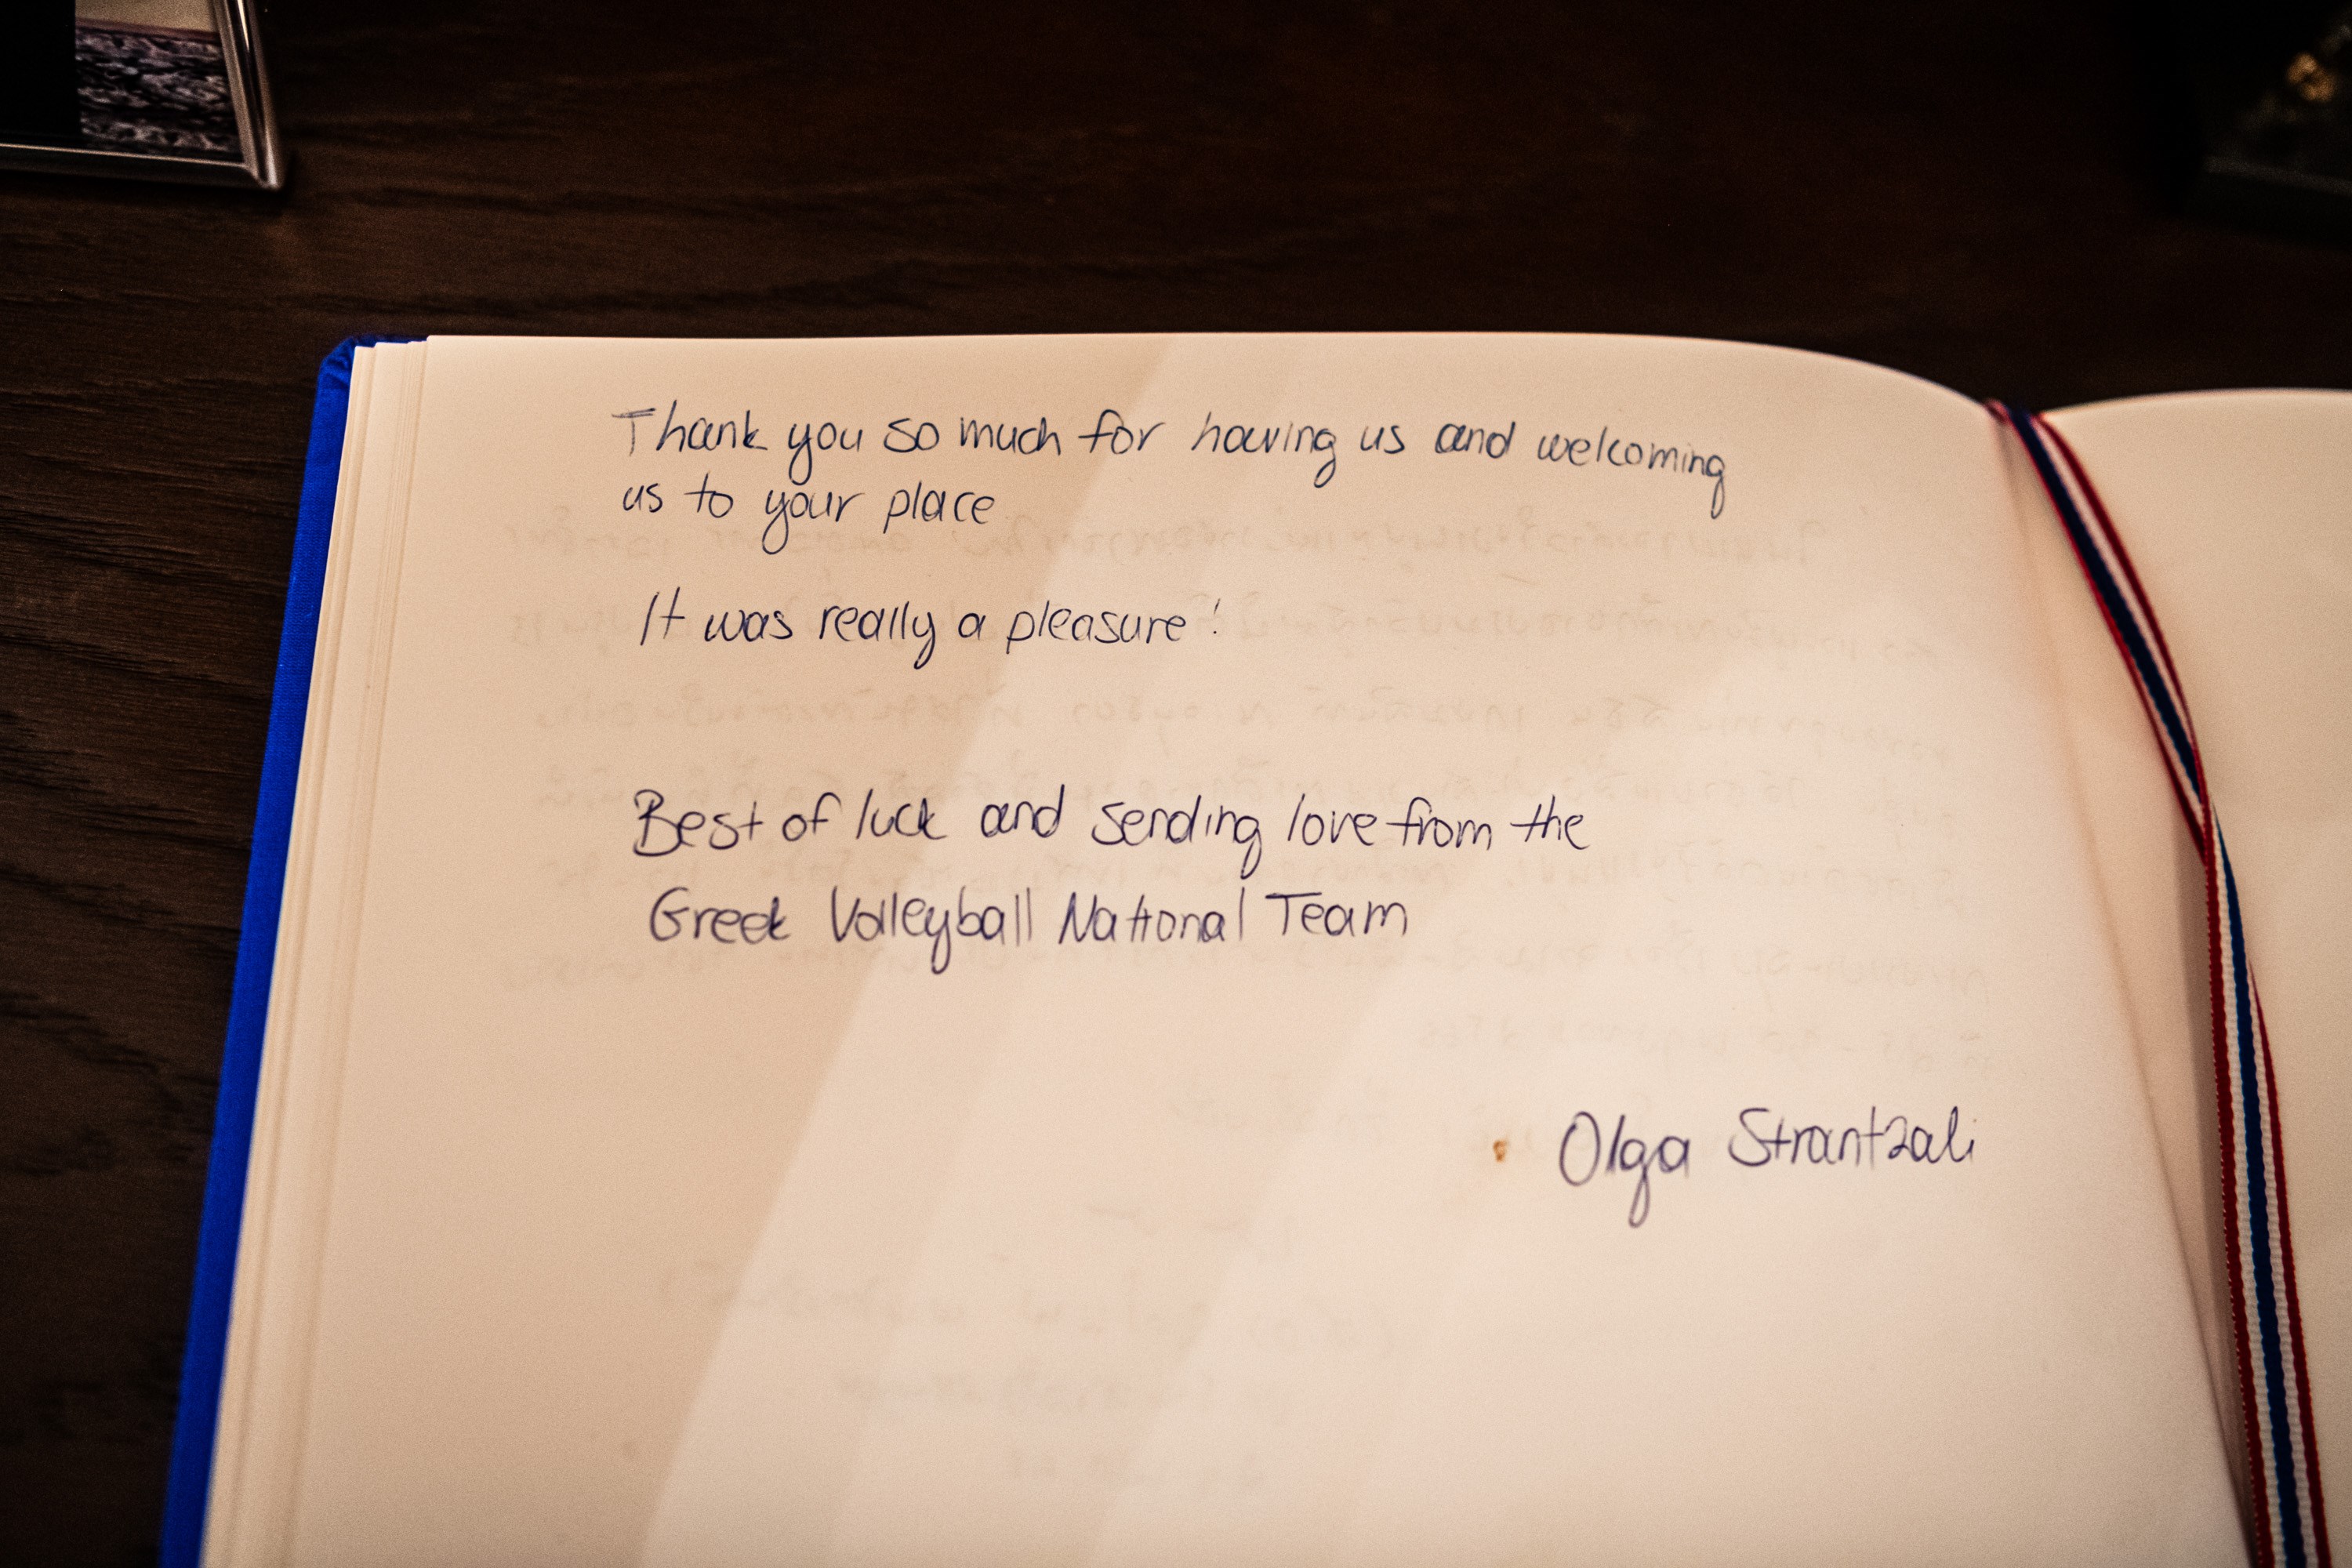 Thank you so much for having us and welcoming
us to your place
It was really a pleasure!
Best of luck and sending love from the
Greek Volleyball National Team
Olga Strantzali